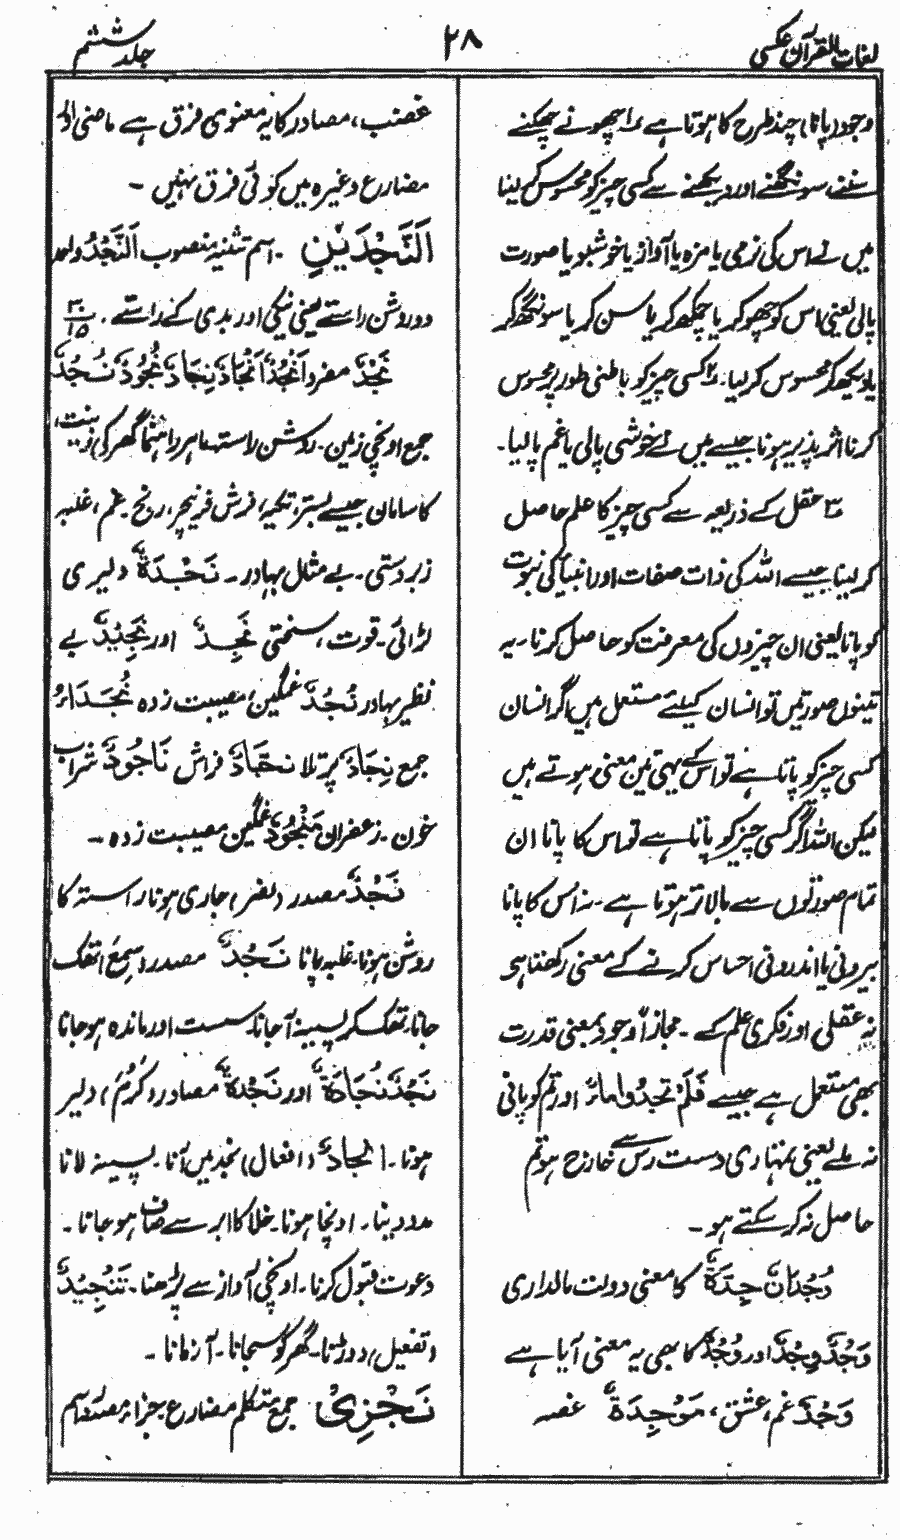 لغات القرآن عکسی
۲۸
جلد ششم
وجود (پانا) چند طرح کا ہوتا ہے ۱؎ چھونے چکھنے
سننے سونگھنے اور دیکھنے سے کسی چیز کو محسوس کر لینا
میں نے اس کی نرمی یا مزہ یا آواز یا خوشبو یا صورت
پالی یعنی اس کو چھو کر یا چکھ کر یا سن کر یا سونگھ کر
یا دیکھ کر محسوس کر لیا۔ ۲؎ کسی چیز کو باطنی طور پر محسوس
کرنا اثر پذیر ہونا جیسے میں نے خوشی پالی یا غم پا لیا۔
۳؎ عقل کے ذریعہ سے کسی چیز کا علم حاصل
کر لینا جیسے اللہ کی ذات صفات اور انبیاء کی نبوت
کو پانا یعنی ان چیزوں کی معرفت کو حاصل کرنا۔ یہ
تینوں صورتیں تو انسان کیلئے مستعمل ہیں اگر انسان
کسی چیز کو پاتا ہے تو اس کے یہی تین معنی ہوتے ہیں
لیکن اللہ اگر کسی چیز کو پاتا ہے تو اس کا پانا ان
تمام صورتوں سے بالاتر ہوتا ہے۔ نہ اُس کا پانا
بیرونی یا اندرونی احساس کرنے کے معنی رکھتا ہے
نہ عقلی اور فکری علم کے۔ مجازاً وجود بمعنی قدرت
بھی مستعمل ہے جیسے فَلَمْ تَجِدُوا مَاءً اور تم کو پانی
نہ ملے یعنی تمہاری دست رس سے خارج ہو تم
حاصل نہ کر سکتے ہو۔
وُجْدَانٌ جِدَةٌ کا معنی دولت مالداری
وَجْدٌ وِجْدٌ اور وُجْدٌ کا بھی یہ معنی آیا ہے
وَجْدٌ غم، عشق، مَوْجِدَةٌ غصہ
غضب، مصادر کا یہ معنوی فرق ہے ماضی اور
مضارع وغیرہ میں کوئی فرق نہیں۔
اَلنَّجْدَیْنِ۔ اسم تثنیہ منصوب اَلنَّجْدُ واحد
دو روشن راستے یعنی نیکی اور بدی کے راستے۔ ۳۰/۱۵
نَجْدٌ مفرد اَنْجُدٌ اَنْجَادٌ نِجَادٌ نُجُودٌ نُجُدٌ
جمع اونچی زمین۔ روشن راستہ ماہر راہنما گھر کی زینت،
کا سامان جیسے بستر، تکیہ، فرش فرنیچر، رنج۔ غم، غلبہ
زبردستی۔ بے مثال بہادر۔ نَجْدَةٌ دلیری
لڑائی۔ قوت، سختی نَجِدٌ اور نَجِیْدٌ بے
نظیر بہادر نُجُدٌ غمگین، مصیبت زدہ نُجَدَاءُ
جمع نِجَادٌ پرتلا نَجَّادٌ فراش نَاجُوْدٌ شراب
خون۔ زعفران مَنْجُوْدٌ غمگین مصیبت زدہ۔
نَجْدٌ مصدر (نصر) جاری ہونا راستہ کا
روشن ہونا۔ غلبہ پانا نَجْدٌ مصدر (سمع) تھک
جانا۔ تھک کر پسینہ آ جانا۔ سست اور ماندہ ہو جانا
نَجْدٌ نَجَادَةٌ اور نَجْدَةٌ مصادر (کَرُمَ) دلیر
ہونا۔ اِنْجَادٌ (افعال) نجد میں آنا۔ پسینہ لانا
مدد دینا۔ اونچا ہونا۔ خلا کا ابر سے صاف ہو جانا۔
دعوت قبول کرنا۔ اونچی آواز سے پڑھنا۔ تَنْجِیْدٌ
(تفعیل) دوڑنا۔ گھر کو سجانا۔ آزمانا۔
نَجْزِیْ۔ جمع متکلم مضارع جزاءً مصدر، اسم